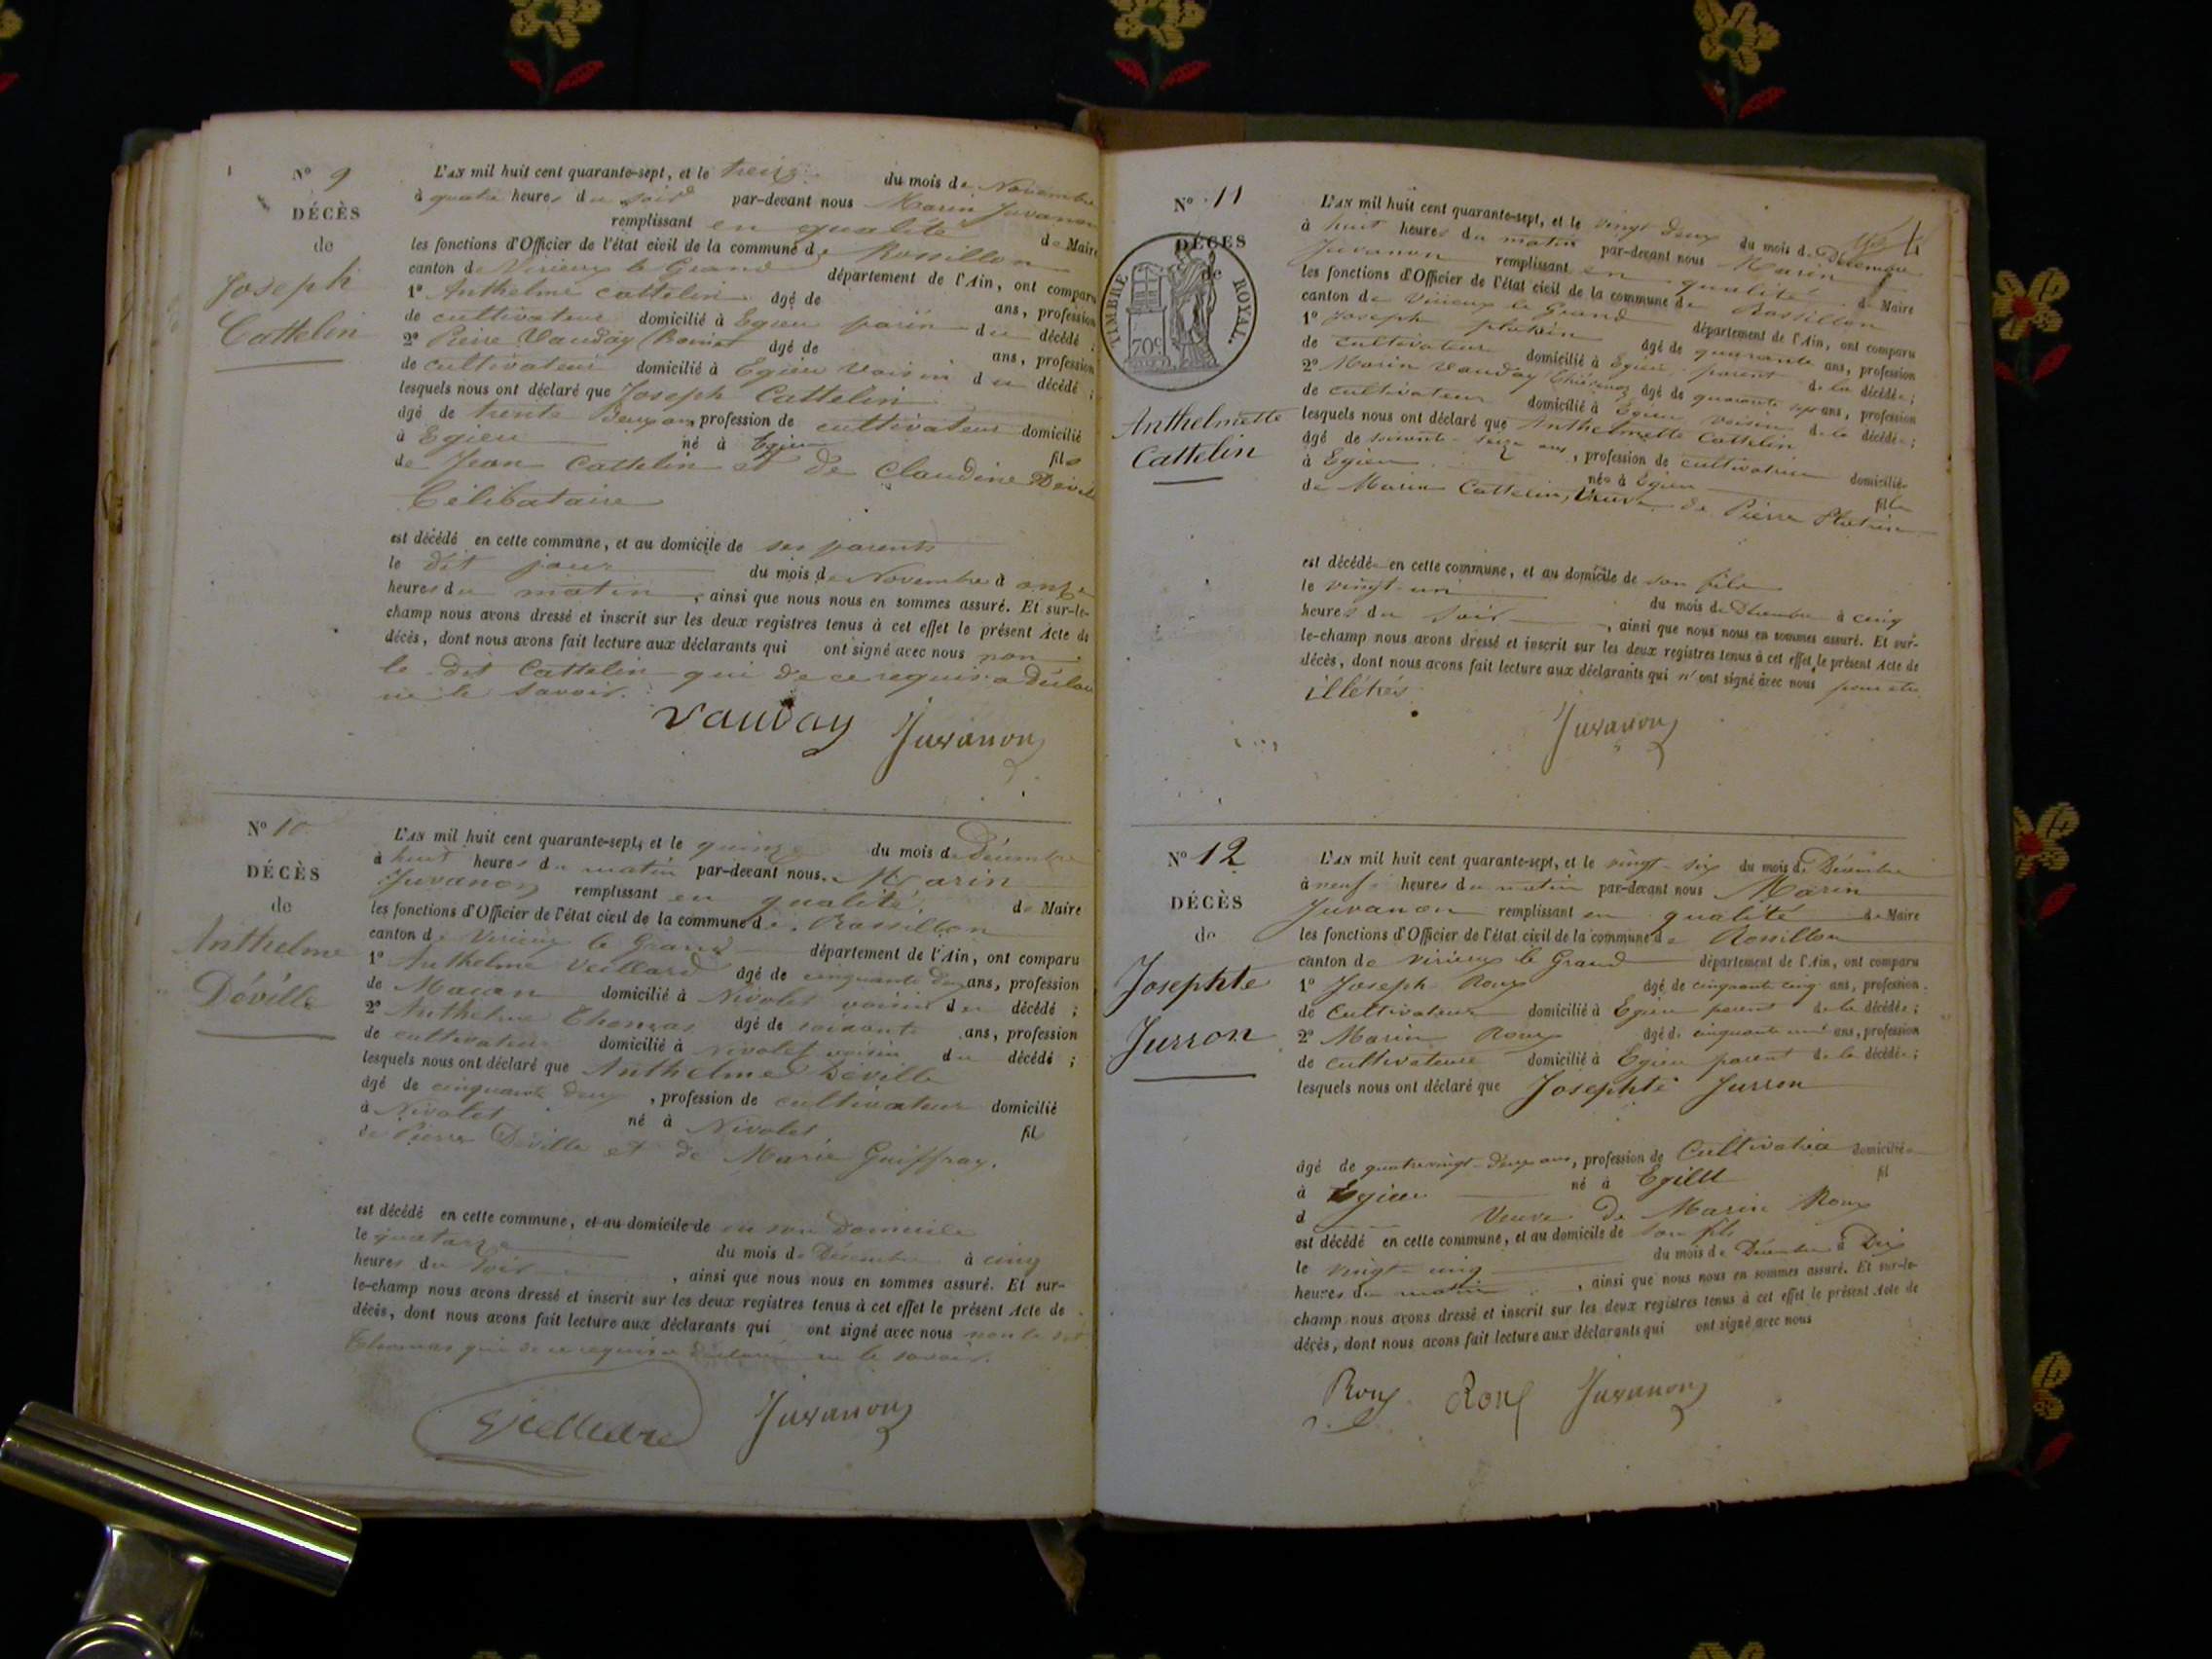 Nº 9
DÉCÈS
de
Joseph
Cattelin
L'AN mil huit cent quarante-sept, et le treize du mois de Novembre
à quatre heures du soir par-devant nous Marin Juvanon
remplissant en qualité de Maire
les fonctions d'Officier de l'état civil de la commune de Rossillon
canton de Virieux le Grand département de l'Ain, ont comparu
1º Anthelme Cattelin âgé de ans, profession
de cultivateur domicilié à Egieu du décédé ;
2º Pierre Vauday âgé de ans, profession
de cultivateur domicilié à Egieu voisin du décédé ;
lesquels nous ont déclaré que Joseph Cattelin
âgé de trente Deux ans, profession de cultivateur domicilié
à Egieu né à Egieu fils
de Jean Cattelin et de Claudine Deville
Célibataire
est décédé en cette commune, et au domicile de ses parents
le dit jour du mois de Novembre à onze
heures du matin, ainsi que nous nous en sommes assuré. Et sur-le-
champ nous avons dressé et inscrit sur les deux registres tenus à cet effet le présent Acte de
décès, dont nous avons fait lecture aux déclarants qui ont signé avec nous non
le dit Cattelin qui de ce requis a déclaré
ne le savoir.
Vauday Juvanon
Nº 10
DÉCÈS
de
Anthelme
Déville
L'AN mil huit cent quarante-sept, et le quinze du mois de Décembre
à huit heures du matin par-devant nous Marin
Juvanon remplissant en qualité de Maire
les fonctions d'Officier de l'état civil de la commune de Rossillon
canton de Virieux le Grand département de l'Ain, ont comparu
1º Anthelme Veillard âgé de cinquante deux ans, profession
de Maçon domicilié à Nivolet voisin du décédé ;
2º Anthelme Thomas âgé de soixante ans, profession
de cultivateur domicilié à Nivolet voisin du décédé ;
lesquels nous ont déclaré que Anthelme Déville
âgé de cinquante deux, profession de cultivateur domicilié
à Nivolet né à Nivolet fils
de Pierre Déville et de Marie Guiffray.
est décédé en cette commune, et au domicile de en son Domicile
le quatorze du mois de Décembre à cinq
heures du soir, ainsi que nous nous en sommes assuré. Et sur-
le-champ nous avons dressé et inscrit sur les deux registres tenus à cet effet le présent Acte de
décès, dont nous avons fait lecture aux déclarants qui ont signé avec nous non le dit
Thomas qui de ce requis a déclaré ne le savoir.
Juvanon
Nº 11
DÉCÈS
de
TIMBRE ROYAL.
70c
Anthelmette
Cattelin
L'AN mil huit cent quarante-sept, et le vingt deux du mois de Décembre
à huit heures du matin par-devant nous Marin
Juvanon remplissant en qualité de Maire
les fonctions d'Officier de l'état civil de la commune de Rossillon
canton de Virieux le Grand département de l'Ain, ont comparu
1º Joseph âgé de quarante ans, profession
de cultivateur domicilié à Egieu parent de la décédée ;
2º Marin Vauday âgé de quarante sept ans, profession
de cultivateur domicilié à Egieu voisin de la décédée ;
lesquels nous ont déclaré que Anthelmette Cattelin
âgé de soixante-seize ans, profession de cultivatrice domiciliée
à Egieu née à Egieu fille
de Marin Cattelin, Veuve de Pierre
est décédée en cette commune, et au domicile de son fils
le vingt-un du mois de Décembre à cinq
heures du soir, ainsi que nous nous en sommes assuré. Et sur-
le-champ nous avons dressé et inscrit sur les deux registres tenus à cet effet le présent Acte de
décès, dont nous avons fait lecture aux déclarants qui n'ont signé avec nous pour être
illétrés
Juvanon
Nº 12
DÉCÈS
de
Josephte
Jurron
L'AN mil huit cent quarante-sept, et le vingt-six du mois de Décembre
à neuf heures du matin par-devant nous Marin
Juvanon remplissant en qualité de Maire
les fonctions d'Officier de l'état civil de la commune de Rossillon
canton de Virieux le Grand département de l'Ain, ont comparu
1º Joseph Roux âgé de cinquante cinq ans, profession
de Cultivateur domicilié à Egieu parent de la décédée ;
2º Marin Roux âgé de cinquante ans, profession
de cultivateur domicilié à Egieu parent de la décédée ;
lesquels nous ont déclaré que Josephte Jurron
âgé de quatrevingt-deux ans, profession de Cultivatrice domiciliée
à Egieu né à Egieu fil
d Veuve de Marin Roux
est décédé en cette commune, et au domicile de son fils
le vingt-cinq du mois de Décembre à Dix
heures du matin, ainsi que nous nous en sommes assuré. Et sur-le-
champ nous avons dressé et inscrit sur les deux registres tenus à cet effet le présent Acte de
décès, dont nous avons fait lecture aux déclarants qui ont signé avec nous
Roux Roux Juvanon